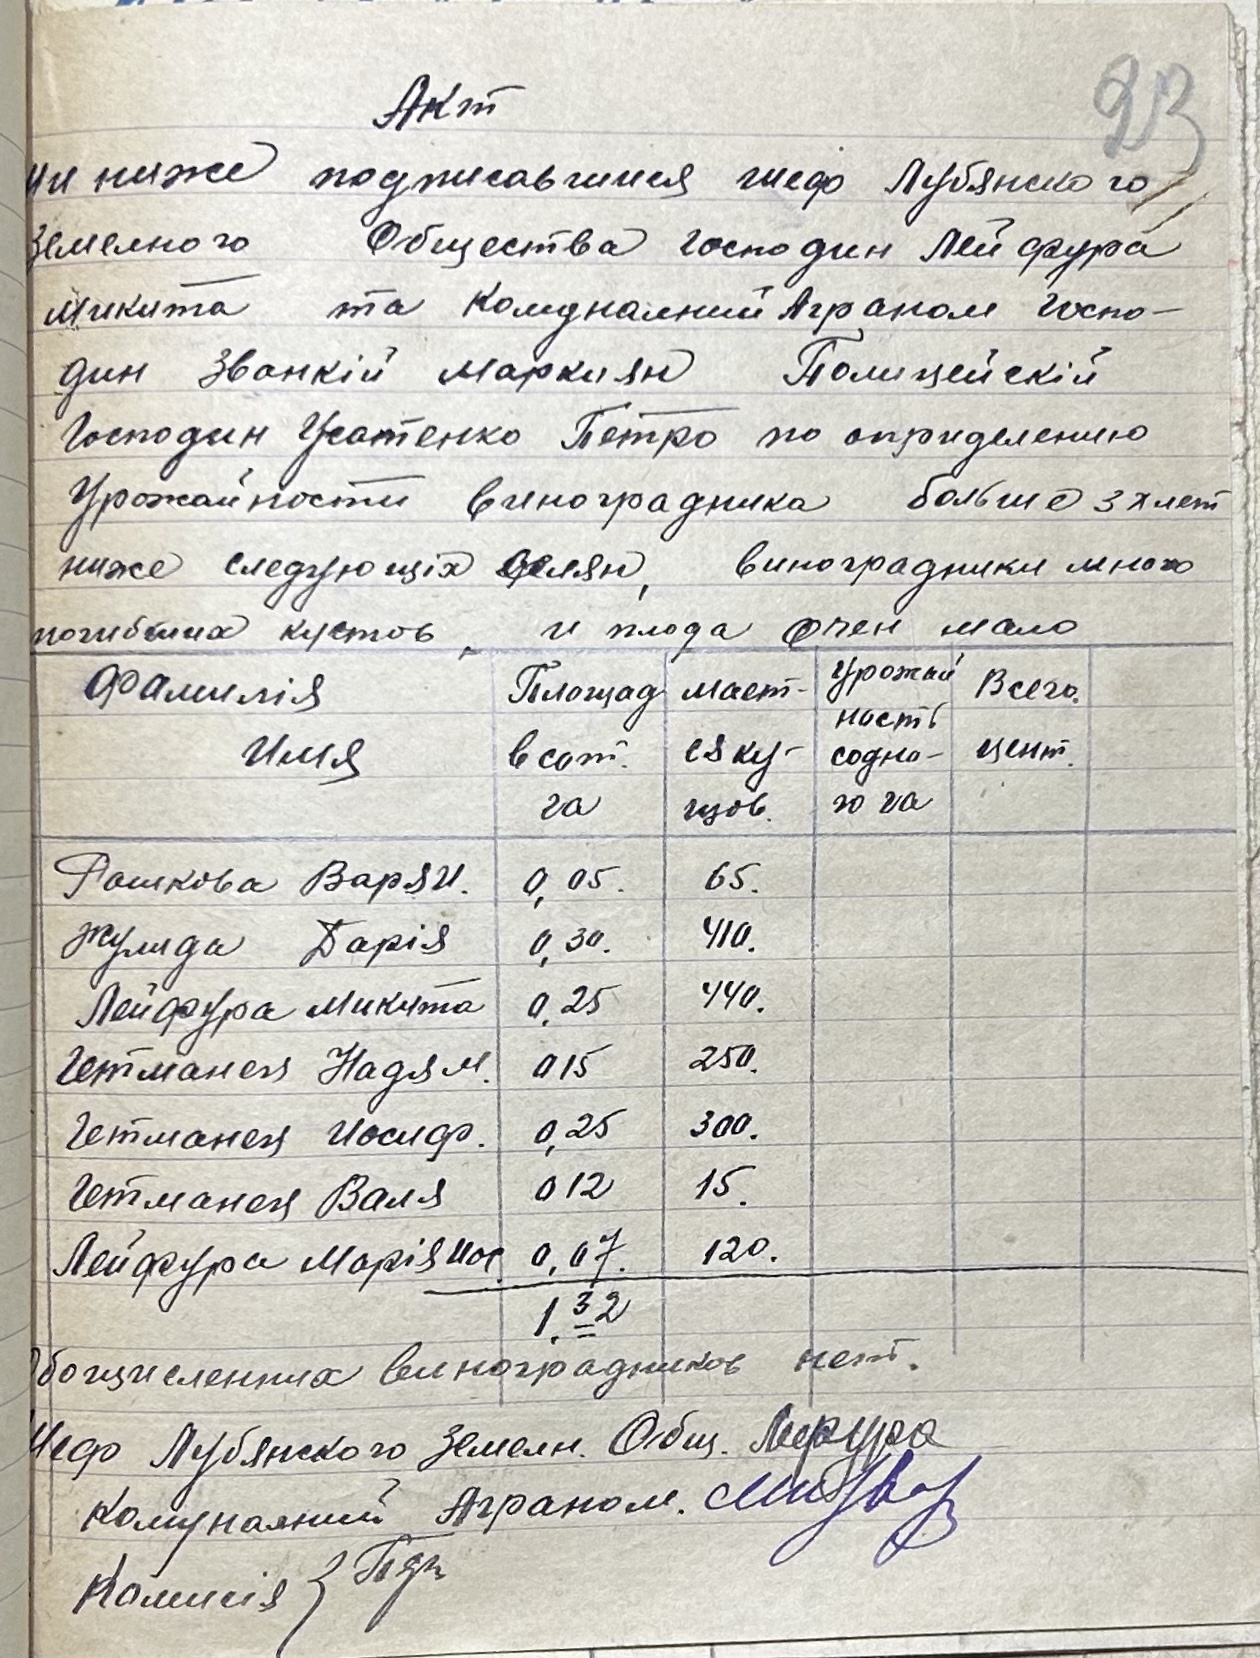 23
Акт
Ми ниже подписавшиися шеф Лубянского
Земелного Общества Господин Лейфура
Микита та Комуналний Аграном Госпо-
дин Званкій Маркиян Полицейскій
Господин Усатенко Петро по определению
Урожайности виноградника больше 3х лет
ниже следующіх делян, виноградники много
погибших кустов, и плода очен мало
Фамилія Имя | Площад в сот. га | мает-ся ку-щов. | Урожай ность содно-го га | Всего. цент.
Рашкова Варя И. 0,05. 65.
Жулида Дарія 0,30. 410.
Лейфура Микита 0,25 440.
Гетманец Надя М. 015 250.
Гетманец Иосиф. 0,25 300.
Гетманец Валя 012 15.
Лейфура Марія Иос. 0,07. 120.
1,32
Обощисленних виноградников нет.
Шеф Лубянского Земелн. Общ. Лефура
Комуналний Аграном.
Комисія {